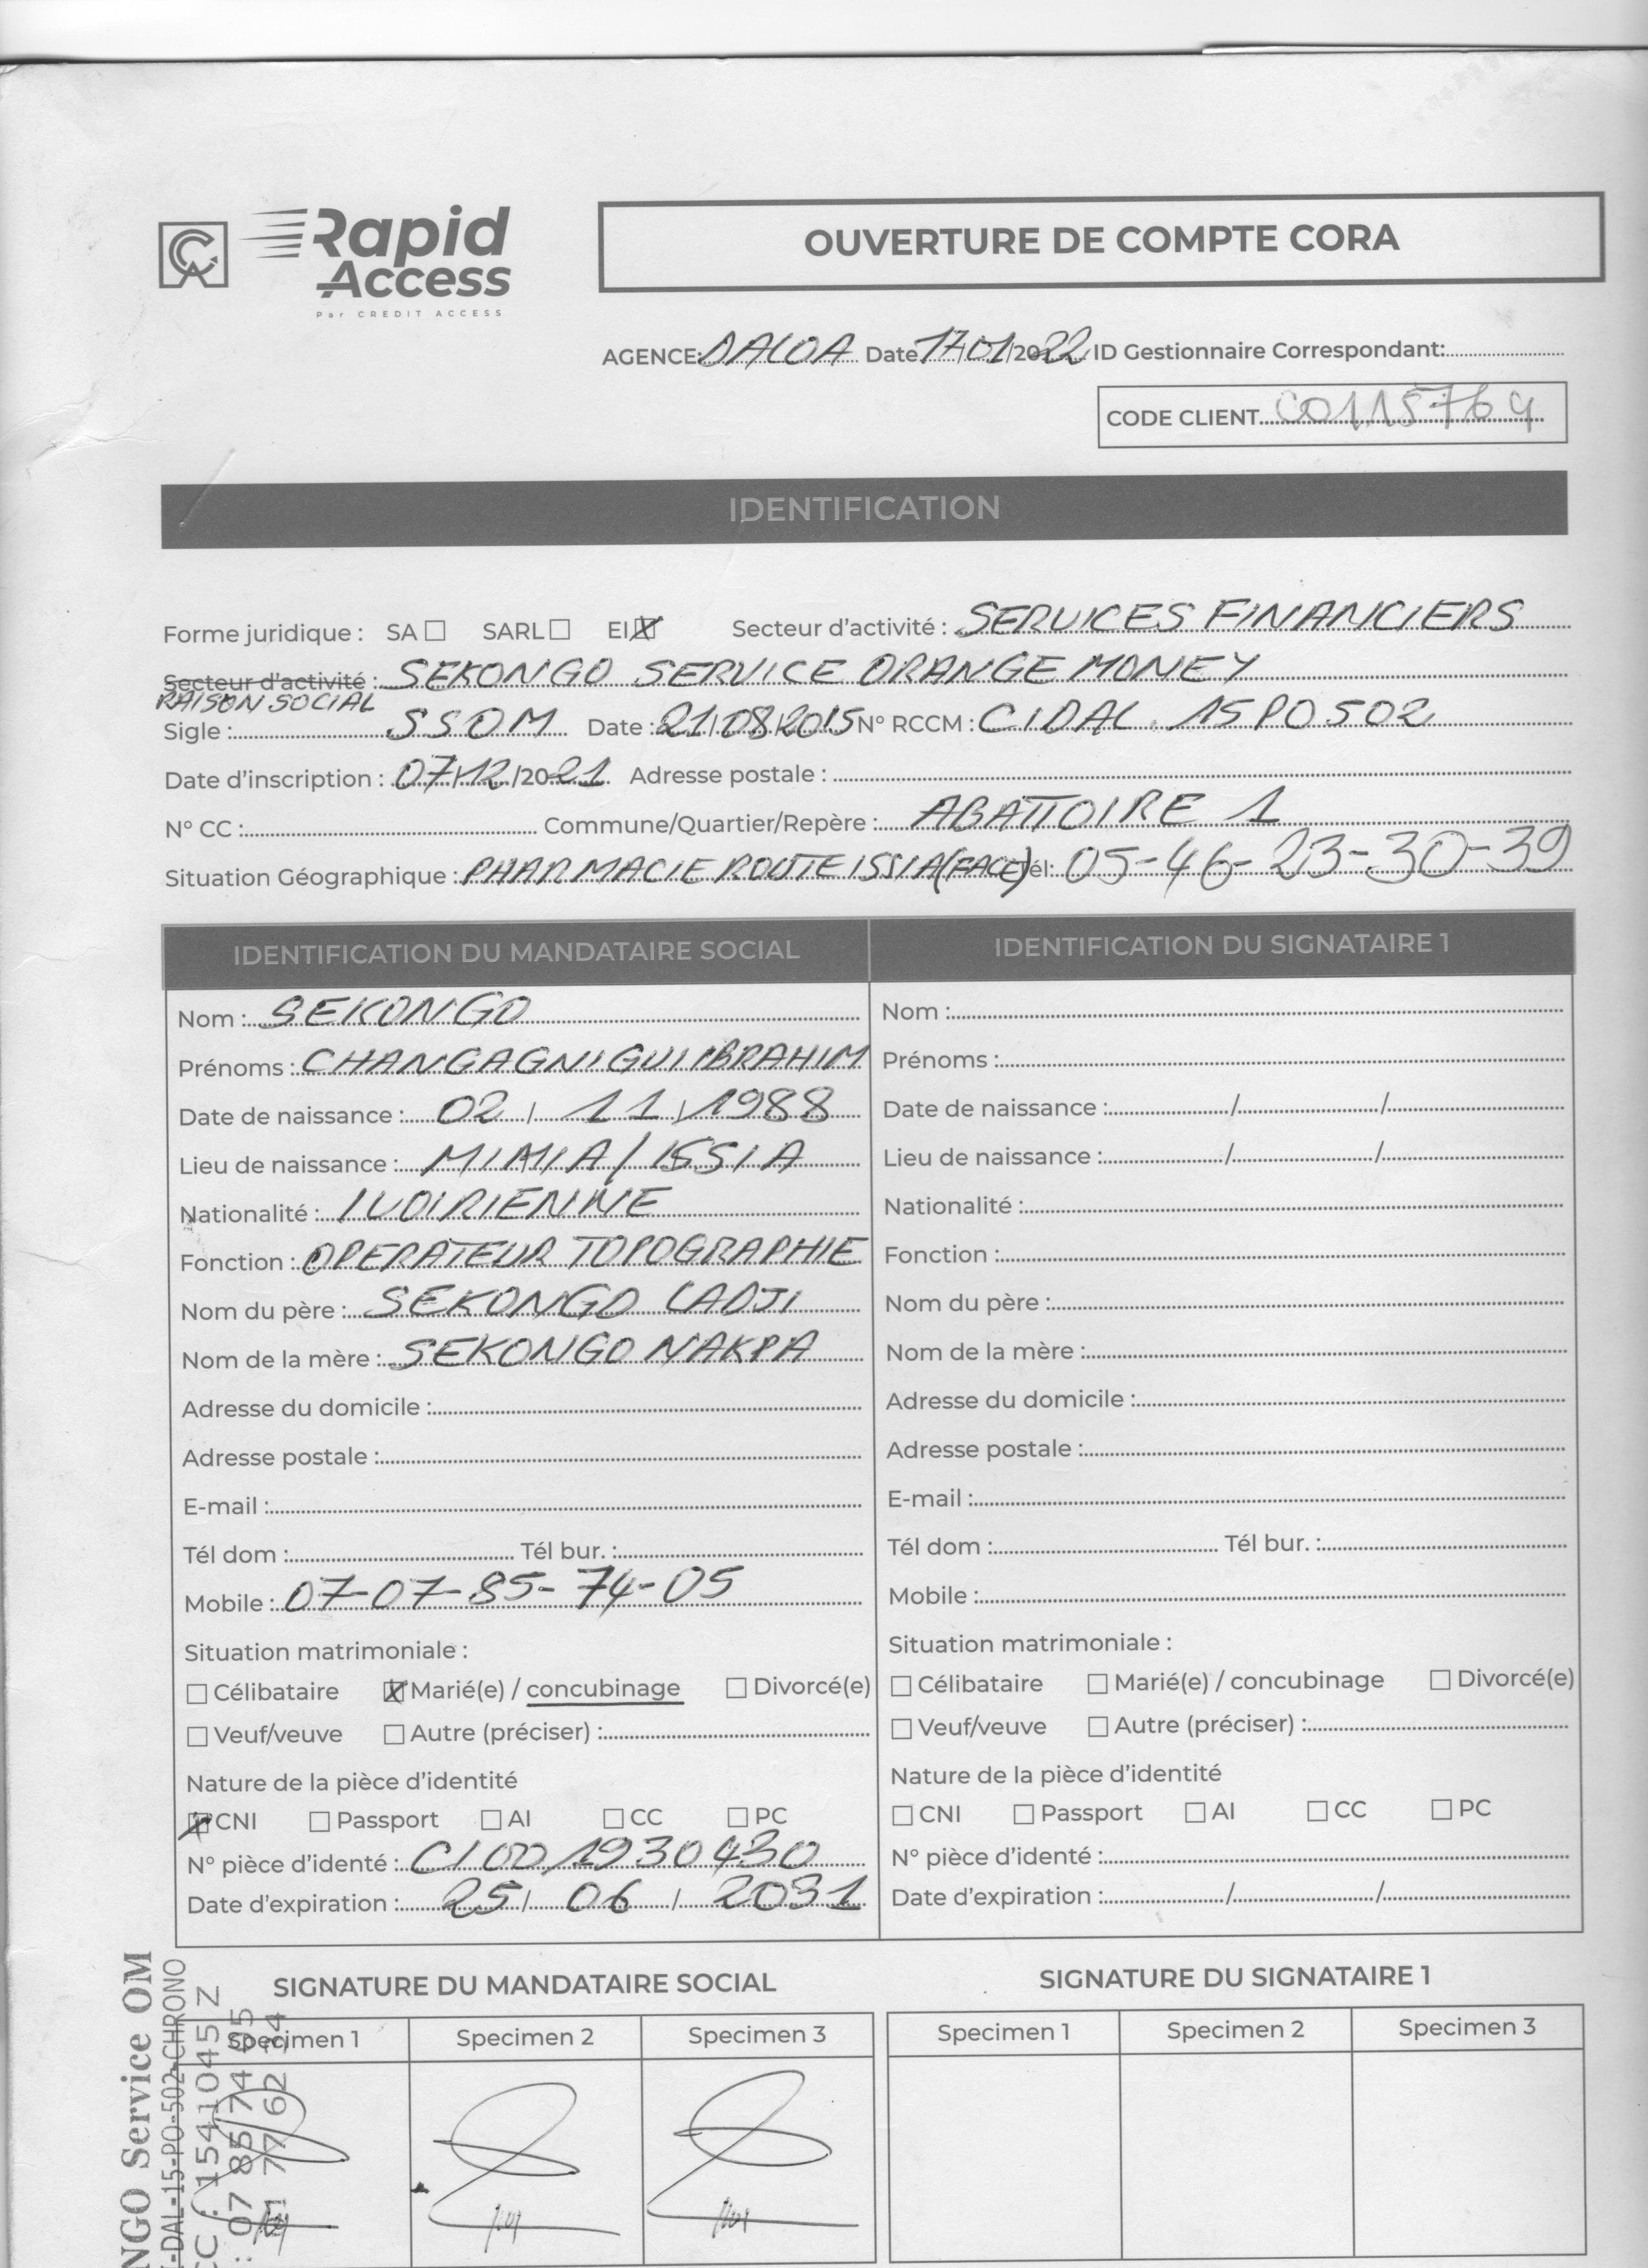 CA Rapid Access
Par CREDIT ACCESS
OUVERTURE DE COMPTE CORA
AGENCE: DALOA Date 17/01/2022 ID Gestionnaire Correspondant:
CODE CLIENT C0115764
IDENTIFICATION
Forme juridique : SA ☐ SARL ☐ EI ☒ Secteur d'activité : SERVICES FINANCIERS
Secteur d'activité : SEKONGO SERVICE ORANGE MONEY
RAISON SOCIAL
Sigle : SSOM Date : 21/08/2015 N° RCCM : CIDAL 15P0502
Date d'inscription : 07/12/2021 Adresse postale :
N° CC : Commune/Quartier/Repère : ABATTOIRE 1
Situation Géographique : PHARMACIE ROUTE ISSIA (FACE) Tél: 05-46-23-30-39
IDENTIFICATION DU MANDATAIRE SOCIAL
Nom : SEKONGO
Prénoms : CHANGAGNIGUI IBRAHIM
Date de naissance : 02 / 11 / 1988
Lieu de naissance : MIMIA / ISSIA
Nationalité : IVOIRIENNE
Fonction : OPERATEUR TOPOGRAPHIE
Nom du père : SEKONGO LADJI
Nom de la mère : SEKONGO NAKPA
Adresse du domicile :
Adresse postale :
E-mail :
Tél dom : Tél bur. :
Mobile : 07-07-85-74-05
Situation matrimoniale :
☐ Célibataire ☒ Marié(e) / concubinage ☐ Divorcé(e)
☐ Veuf/veuve ☐ Autre (préciser) :
Nature de la pièce d'identité
☒ CNI ☐ Passport ☐ AI ☐ CC ☐ PC
N° pièce d'identé : CI001930430
Date d'expiration : 25 / 06 / 2031
IDENTIFICATION DU SIGNATAIRE 1
Nom :
Prénoms :
Date de naissance : / /
Lieu de naissance : / /
Nationalité :
Fonction :
Nom du père :
Nom de la mère :
Adresse du domicile :
Adresse postale :
E-mail :
Tél dom : Tél bur. :
Mobile :
Situation matrimoniale :
☐ Célibataire ☐ Marié(e) / concubinage ☐ Divorcé(e)
☐ Veuf/veuve ☐ Autre (préciser) :
Nature de la pièce d'identité
☐ CNI ☐ Passport ☐ AI ☐ CC ☐ PC
N° pièce d'identé :
Date d'expiration : / /
SIGNATURE DU MANDATAIRE SOCIAL
Specimen 1 Specimen 2 Specimen 3
SIGNATURE DU SIGNATAIRE 1
Specimen 1 Specimen 2 Specimen 3
NGO Service OM
-DAL-15-PO-502-CHRONO
CC : 1541045 Z
: 07 85 74 05
77 62